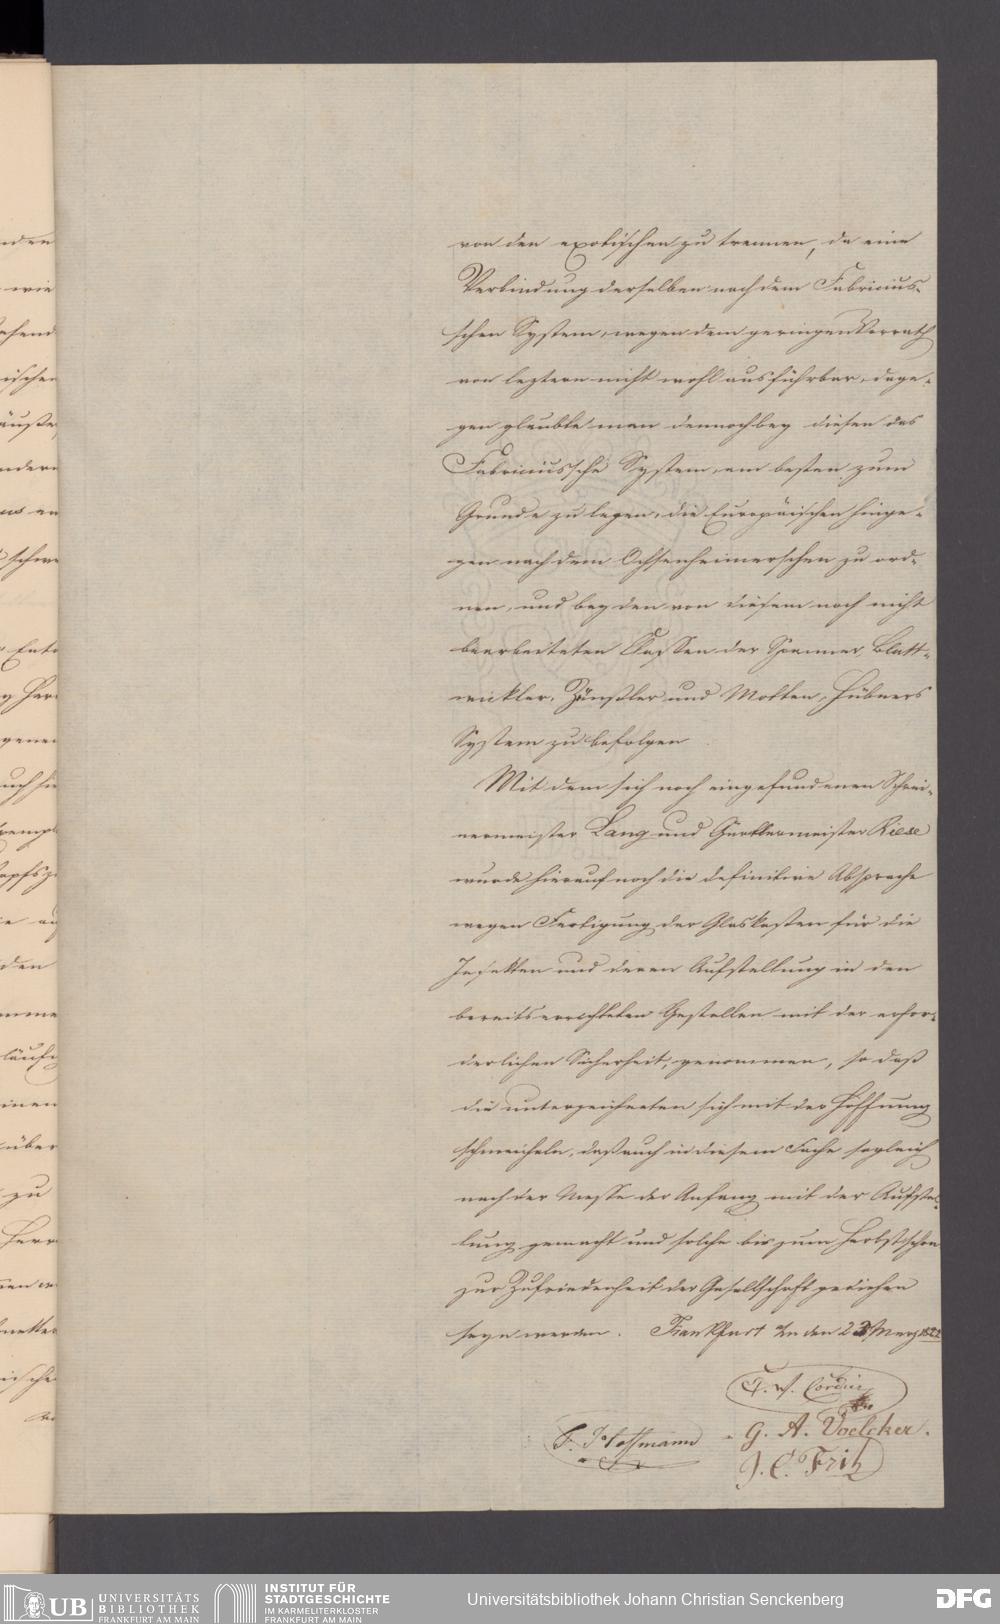 von den exotischen zu trennen, da eine
Verbindung derselben nach dem Fabricius-
schen System, wegen dem geringen Vorrath
von leztern nicht wohl ausführbar, dage-
gen glaubte man dennoch bey diesen das
Fabricius'sche System, am besten zum
Grunde zu legen, die Europäischen hinge-
gen nach dem Ochsenheimerschen zu ord-
nen, und bey den von diesem noch nicht
bearbeiteten Classen der Spanner, Blatt-
wickler, Zünsler und Motten, Hübners
System zu befolgen.
Mit dem sich noch eingefundenen Schrei-
nermeister Lang und Gürtlermeister Riese
wurde hierauf noch die definitive Absprache
wegen Fertigung der Glaskasten für die
Insekten und deren Aufstellung in den
bereits errichteten Gestellen mit der erfor-
derlichen Sicherheit, genommen, so daß
die unterzeichneten sich mit der Hoffnung
schmeicheln, daß auch in diesem Fache sogleich
nach der Messe der Anfang mit der Aufstel-
lung gemacht und solche bis zum Herbst schon
zur Zufriedenheit der Gesellschaft gediehen
seyn werden. Frankfurt a/m den 23 Merz 1822
G. A. Voelcker.
J. C. Fritz
UB UNIVERSITÄTS
BIBLIOTHEK
FRANKFURT AM MAIN
INSTITUT FÜR
STADTGESCHICHTE
IM KARMELITERKLOSTER
FRANKFURT AM MAIN
Universitätsbibliothek Johann Christian Senckenberg
DFG